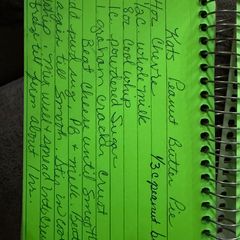 Kats Peanut Butter Pie
4 oz Cheese 1/3 c peanut b
1/2 c. whole milk
8 oz Cool whip
1 c powdered Sugar
1 graham cracker crust
Beat Cheese until Smooth
add pwd sugar PB & milk Beat
again till smooth Stir in coo
whip mix well & spread into crus
till firm about hr.